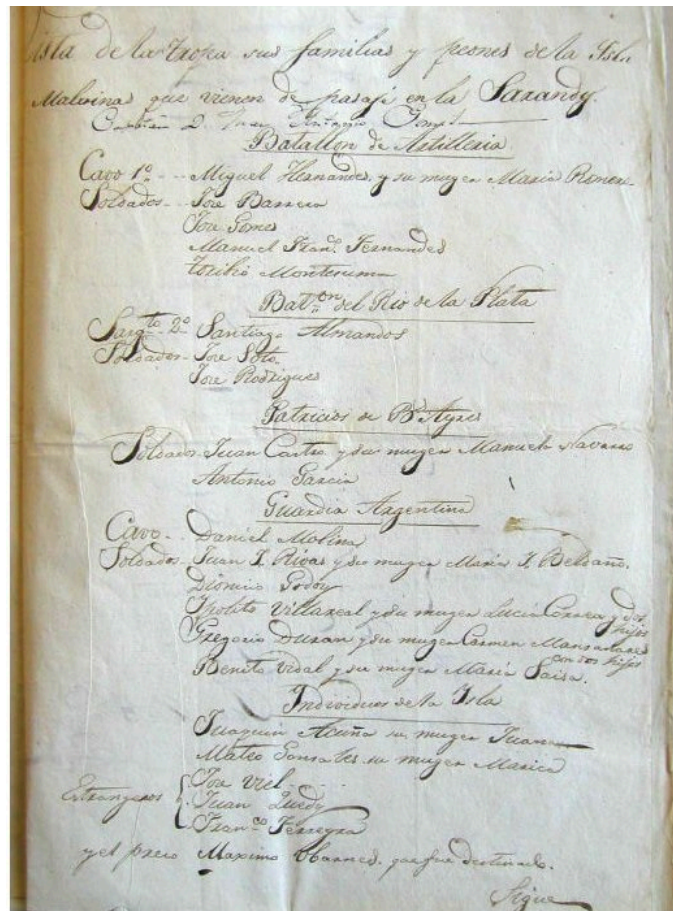 Lista de la Tropa sus familias y peones de la Isla
Malvina que vienen de pasaje en la Sarandy.
Capitan D. Juan Antonio Gomes
Batallon de Artilleria
Cavo 1º --- Miguel Hernandes y su muger Maria Romero
Soldados -- Jose Barrera
Jose Gomes
Manuel Franco. Fernandes
Torihio Montesuma
Baton del Rio de la Plata
Sargto 2º Santiago Almandos
Soldados - Jose Soto.
Jose Rodrigues
Patricios de Bs Ayres
Soldados - Juan Castro y su muger Manuela Navarro
Antonio Garcia
Guardia Argentina
Cavo -- Daniel Molina
Soldados - Juan J. Rivas y su muger Maria J. Beldaño.
Dionicio Godoy
Ipolito Villareal y su muger Lucia Correa y dos hijos
Gregorio Duran y su muger Carmen Mansanares con dos hijos
Benito Vidal y su muger Maria Saisa.
Individuos de la Isla
Juaquin Acuña su muger Juana
Mateo Gonsales su muger Marica
Estrangeros { Jose Viel
Juan Quedy
Franco Ferreyra
y el preso Maximo que fue destinado.
Sigue